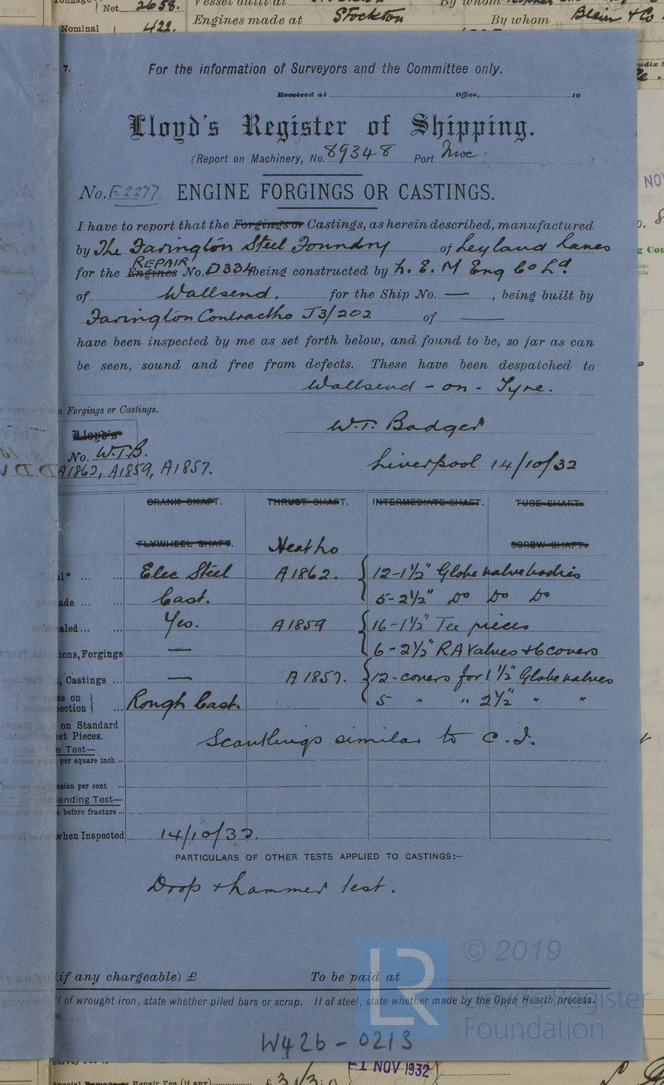 Net 2658. Vessel built at By whom
Nominal 422. Engines made at Stockton By whom Blair & Co
7.
For the information of Surveyors and the Committee only.
Received at Office, 19
Lloyd's Register of Shipping.
(Report on Machinery, No. 89348 Port Nwc.)
No. F2277. ENGINE FORGINGS OR CASTINGS.
I have to report that the Forgings or Castings, as herein described, manufactured
by The Farington Steel Foundry of Leyland Lancs
REPAIR
for the Engines No. D334 being constructed by N. E. M Eng Co Ld
of Wallsend. for the Ship No. — , being built by
Farington Contract No J3/202 of —
have been inspected by me as set forth below, and found to be, so far as can
be seen, sound and free from defects. These have been despatched to
Wallsend - on - Tyne.
n Forgings or Castings.
Lloyd's
No. W.T.B.
A1862, A1859, A1857.
W.T. Badger
Liverpool 14/10/32
CRANK SHAFT. THRUST SHAFT. INTERMEDIATE SHAFT. TUBE SHAFT.
FLYWHEEL SHAFT. Heat No SCREW SHAFT.
Elec Steel A1862. 12-1½" Globe valve bodies
ade ... Cast. 5-2½" Do Do Do
aled ... Yes. A1859 16-1½" Tee pieces
ions, Forgings — 6-2½" RA Valves & 6 covers
, Castings ... — A1857. 12-covers for 1½" Globe valves
ss on
ection Rough Cast. 5 " " 2½" " "
on Standard
st Pieces. Scantlings similar to C.I.
e Test—
per square inch ...
nsion per cent ...
ending Test—
before fracture ...
when Inspected 14/10/32.
PARTICULARS OF OTHER TESTS APPLIED TO CASTINGS:—
Drop & hammer test.
(if any chargeable) £ To be paid at
If of wrought iron, state whether piled bars or scrap. If of steel, state whether made by the Open Hearth process.
© 2019
LR
Lloyd's Register
Foundation
W426-0213
Repair Fee (if any)
E1 NOV 1932